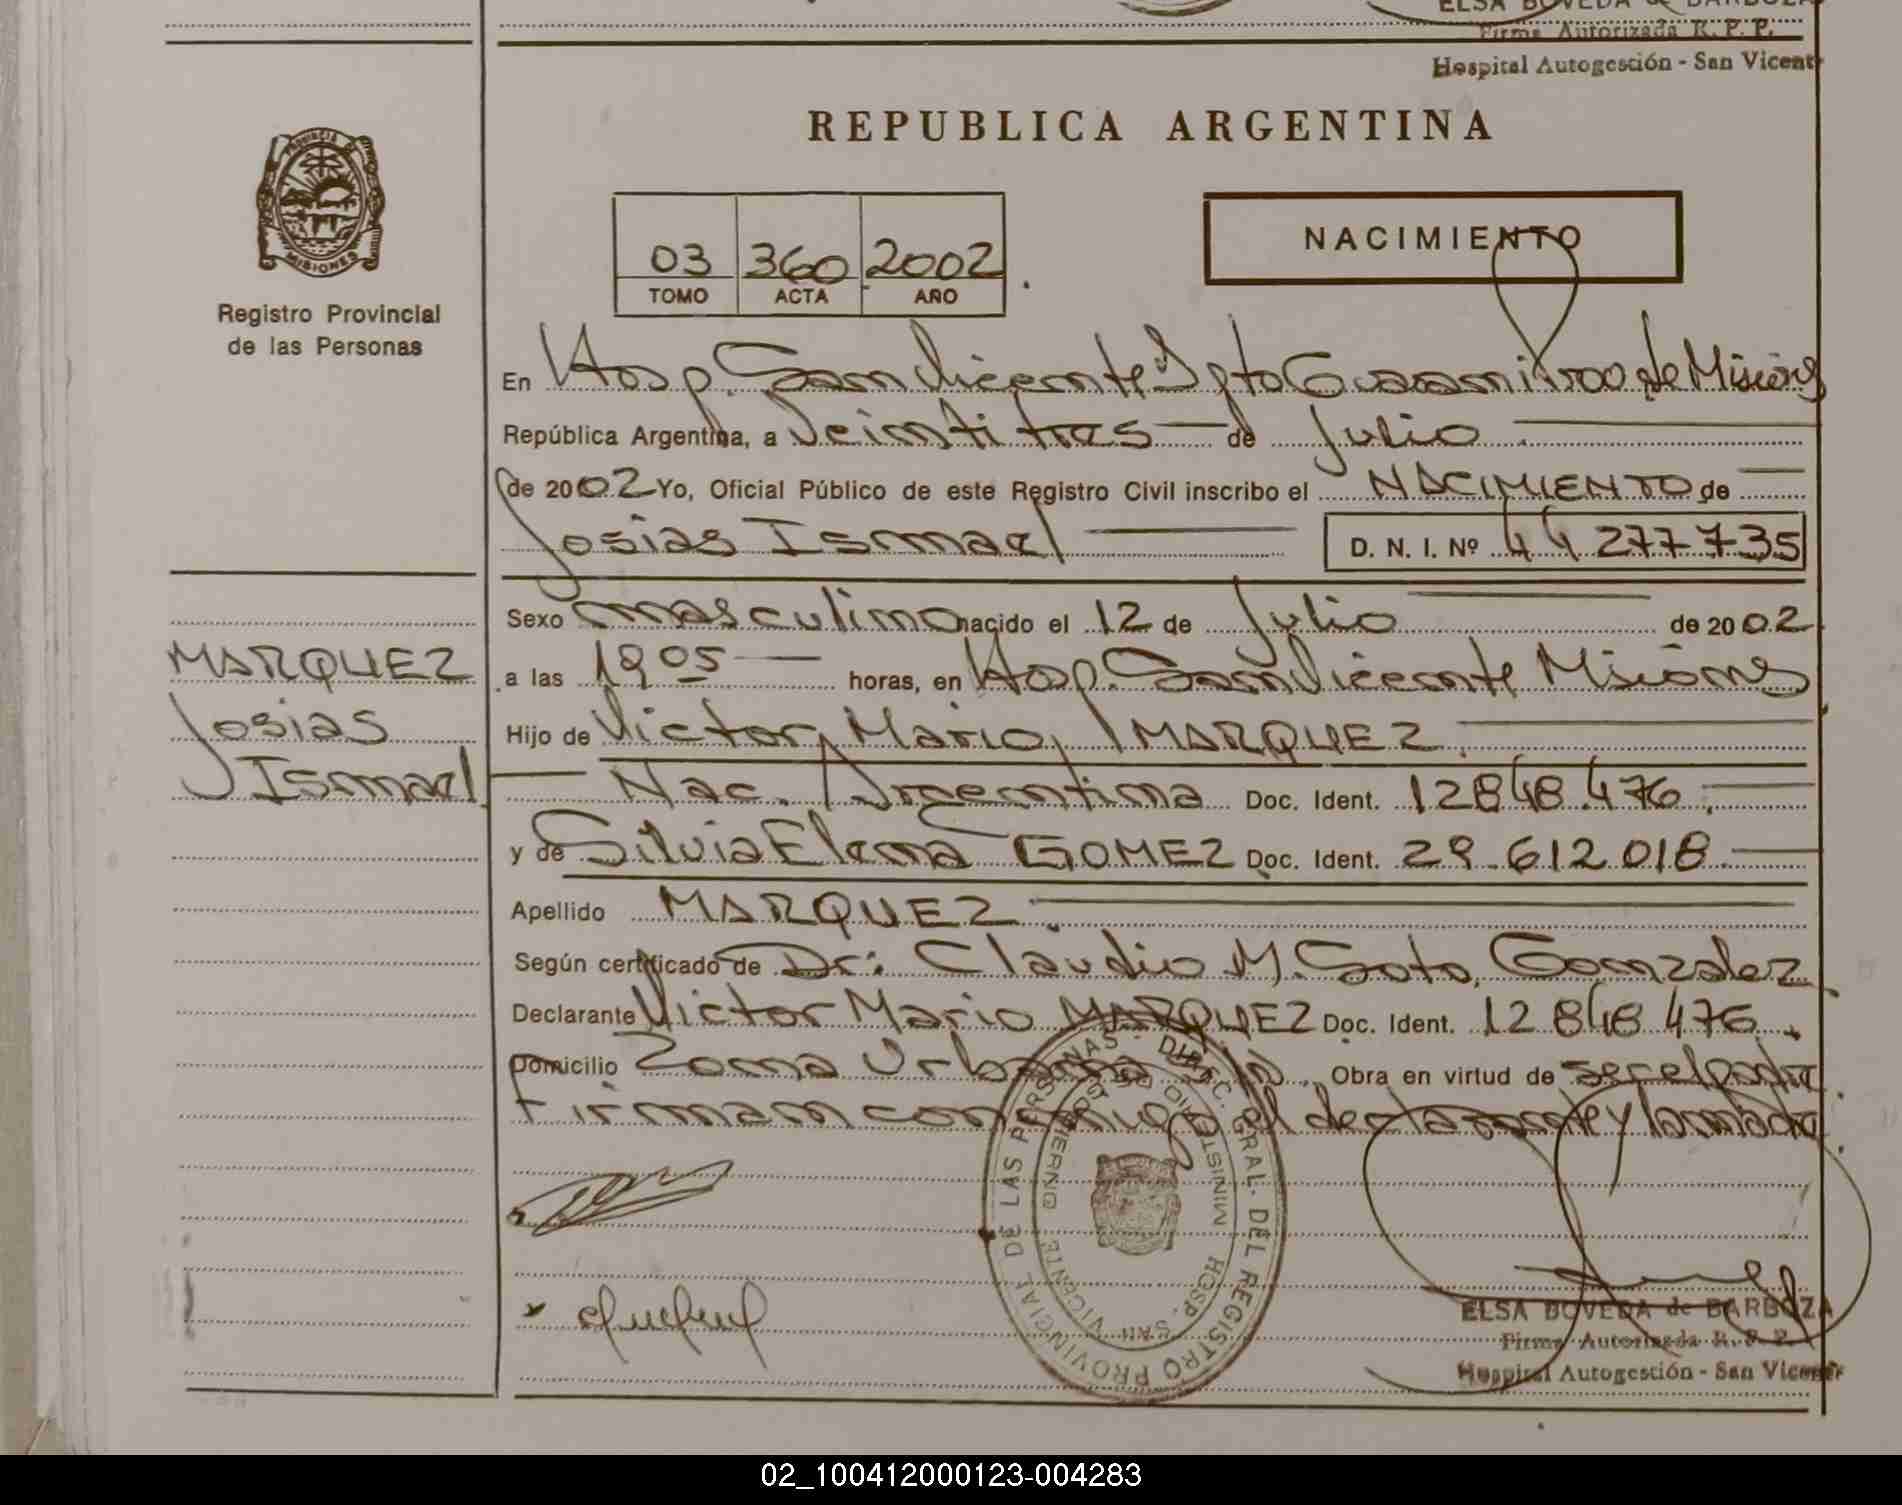 ELSA BOVEDA de BARBOZA
Firma Autorizada R. P. P.
Hospital Autogestión - San Vicente
REPUBLICA ARGENTINA
PROVINCIA DE
MISIONES
Registro Provincial
de las Personas
03 360 2002
TOMO ACTA AÑO
NACIMIENTO
En Hosp. San Vicente Dpto Guaraní Prov de Misiones
República Argentina, a Veintitres de Julio
de 2002 Yo, Oficial Público de este Registro Civil inscribo el NACIMIENTO de
Josias Ismael D. N. I. Nº 44 277 735
Sexo masculino nacido el 12 de Julio de 2002
MARQUEZ
Josias
Ismael
a las 19 05 horas, en Hosp. San Vicente Misiones
Hijo de Victor Mario MARQUEZ
Nac. Argentina Doc. Ident. 12 848 476
y de Silvia Elena GOMEZ Doc. Ident. 29.612 018
Apellido MARQUEZ
Según certificado de Dr: Claudio M. Soto Gonzalez
Declarante Victor Mario MARQUEZ Doc. Ident. 12 848 476
Domicilio Zona Urbana S/N. Obra en virtud de ser el padre
Firman conmigo el declarante y la madre
REGISTRO PROVINCIAL DE LAS PERSONAS - DIREC. GRAL. DEL
MINISTERIO DE GOBIERNO
HOSP. SAN VICENTE
ELSA BOVEDA de BARBOZA
Firma Autorizada R. P. P.
Hospital Autogestión - San Vicente
02_100412000123-004283